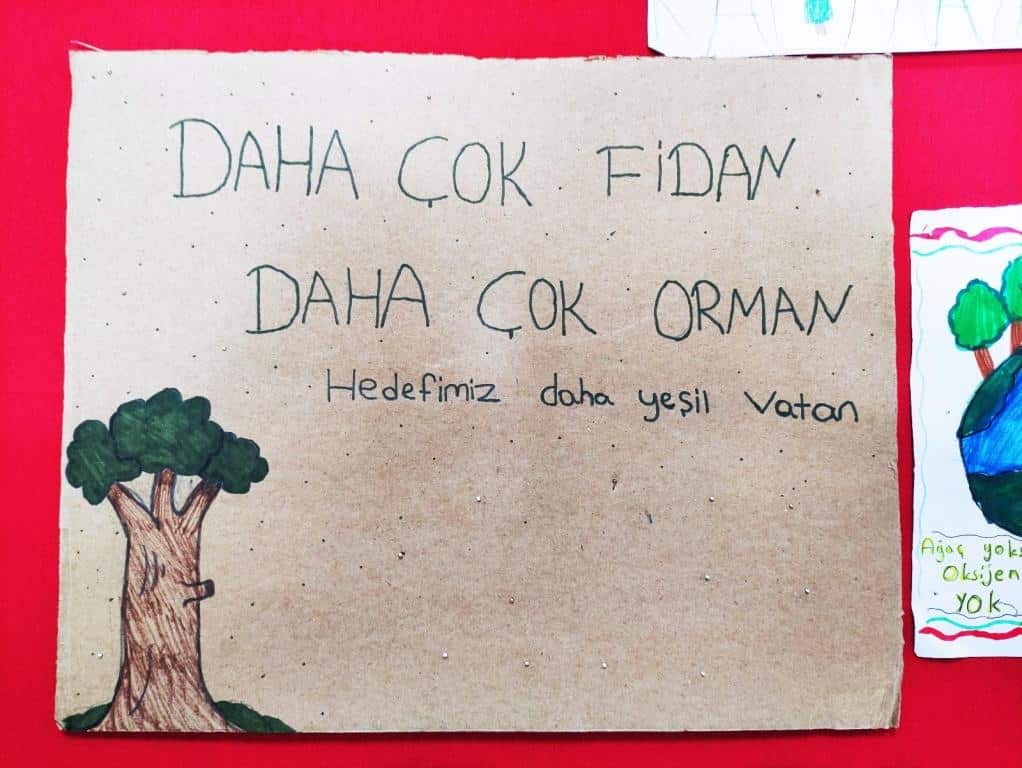 DAHA ÇOK FİDAN
DAHA ÇOK ORMAN
Hedefimiz daha yeşil vatan
Ağaç
Oksijen
YOK